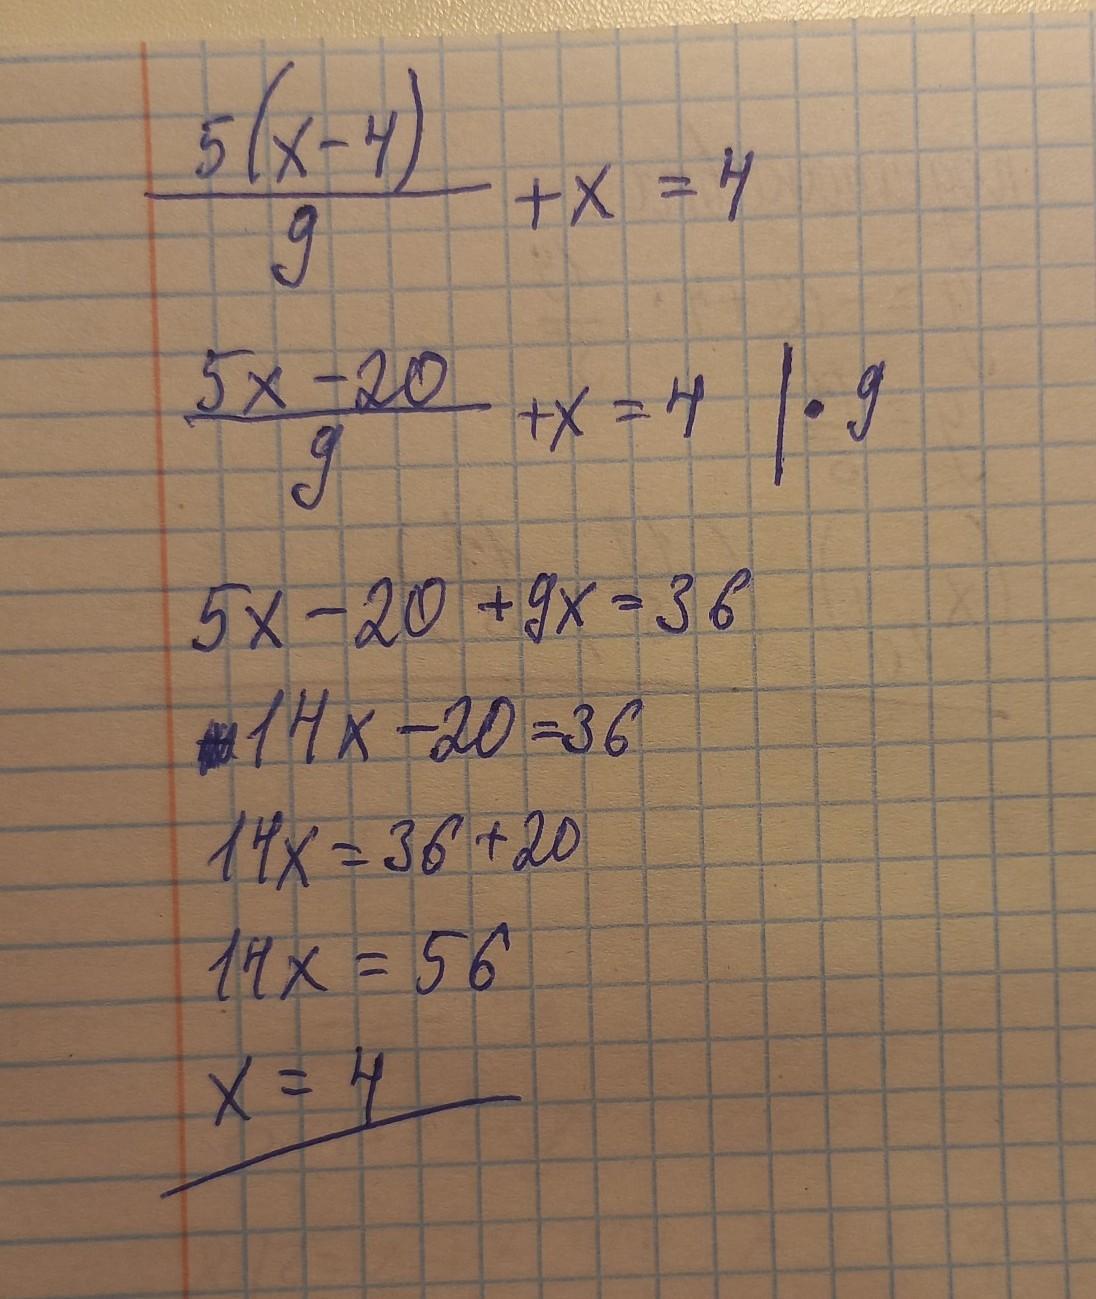 5(x-4)/9 + x = 4
5x - 20/9 + x = 4 | · 9
5x - 20 + 9x = 36
14x - 20 = 36
14x = 36 + 20
14x = 56
x = 4